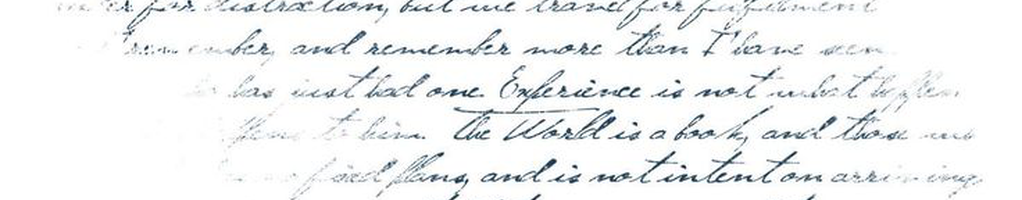 for distraction, but we travel for fulfilment
and remember more than I have seen
has just had one Experience is not what happens
to him. The World is a book, and those
fixed plans, and is not intent on arriving